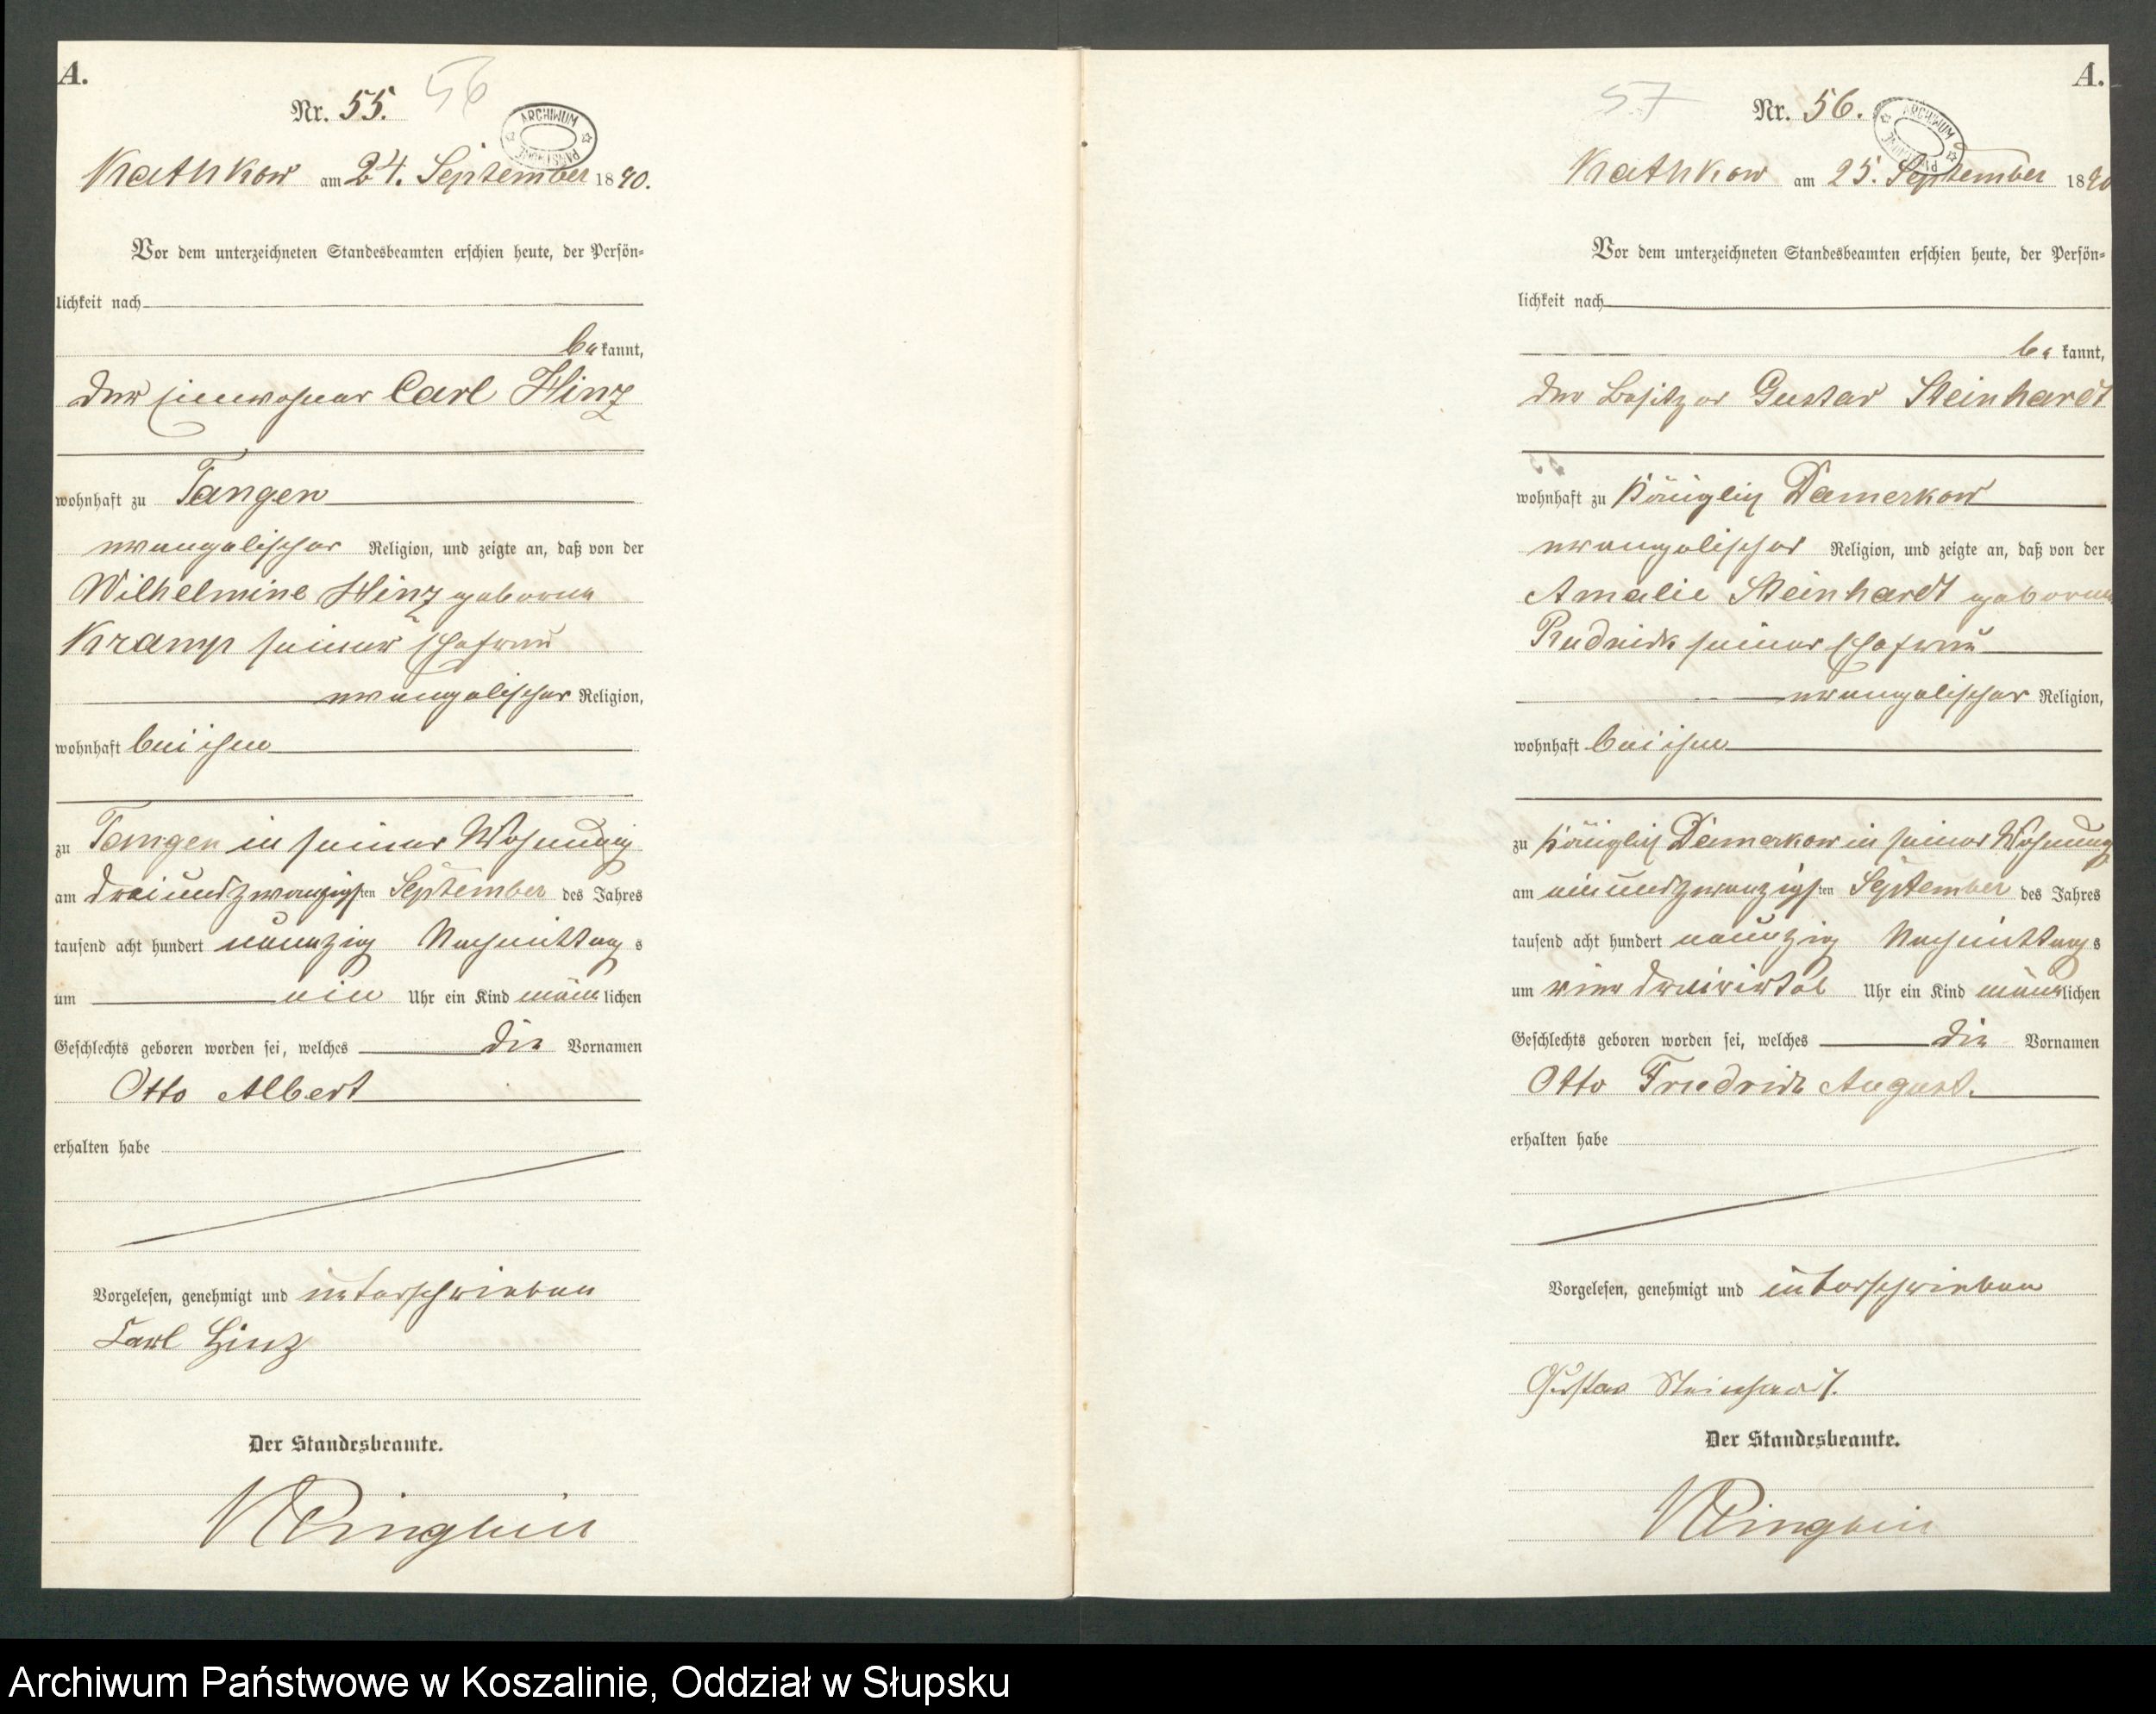 A.
Nr. 55.
56
ARCHIWUM PAŃSTWOWE
Kathkow am 24. September 1890.
Vor dem unterzeichneten Standesbeamten erschien heute, der Persön-
lichkeit nach
bekannt,
der Einwohner Carl Hinz
wohnhaft zu Tangen
evangelischer Religion, und zeigte an, daß von der
Wilhelmine Hinz geborne
Kramp seiner Ehefrau
evangelischer Religion,
wohnhaft bei ihm
zu Tangen in seiner Wohnung
am dreiundzwanzigsten September des Jahres
tausend acht hundert neunzig Nachmittags
um ein Uhr ein Kind männlichen
Geschlechts geboren worden sei, welches die Vornamen
Otto Albert
erhalten habe
Vorgelesen, genehmigt und unterschrieben
Carl Hinz
Der Standesbeamte.
A.
57
Nr. 56.
ARCHIWUM
Kathkow am 25. September 1890
Vor dem unterzeichneten Standesbeamten erschien heute, der Persön-
lichkeit nach
bekannt,
der Besitzer Gustav Steinhardt
wohnhaft zu Königlich Damerkow
evangelischer Religion, und zeigte an, daß von der
Amalie Steinhardt geborne
Rudnick seiner Ehefrau
evangelischer Religion,
wohnhaft bei ihm
zu Königlich Damerkow in seiner Wohnung
am einundzwanzigsten September des Jahres
tausend acht hundert neunzig Nachmittags
um vier dreiviertel Uhr ein Kind männlichen
Geschlechts geboren worden sei, welches die Vornamen
Otto Friedrich August.
erhalten habe
Vorgelesen, genehmigt und unterschrieben
Gustav Steinhardt.
Der Standesbeamte.
Archiwum Państwowe w Koszalinie, Oddział w Słupsku